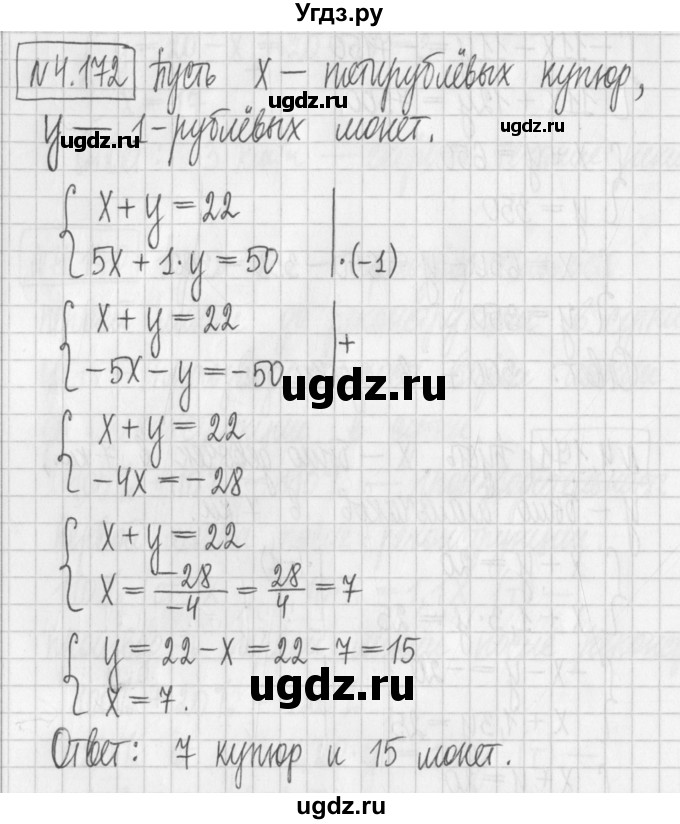 Угдз.ру
№4.172 Пусть x — пятирублёвых купюр,
ugdz.ru ugdz.ru
y — 1-рублёвых монет.
x + y = 22
5x + 1·y = 50 | ·(-1)
x + y = 22
-5x - y = -50 | +
ugdz.ru
x + y = 22
-4x = -28
x + y = 22
x = -28/-4 = 28/4 = 7
y = 22 - x = 22 - 7 = 15
x = 7.
ugdz.ru
Ответ: 7 купюр и 15 монет.
ugdz.ru